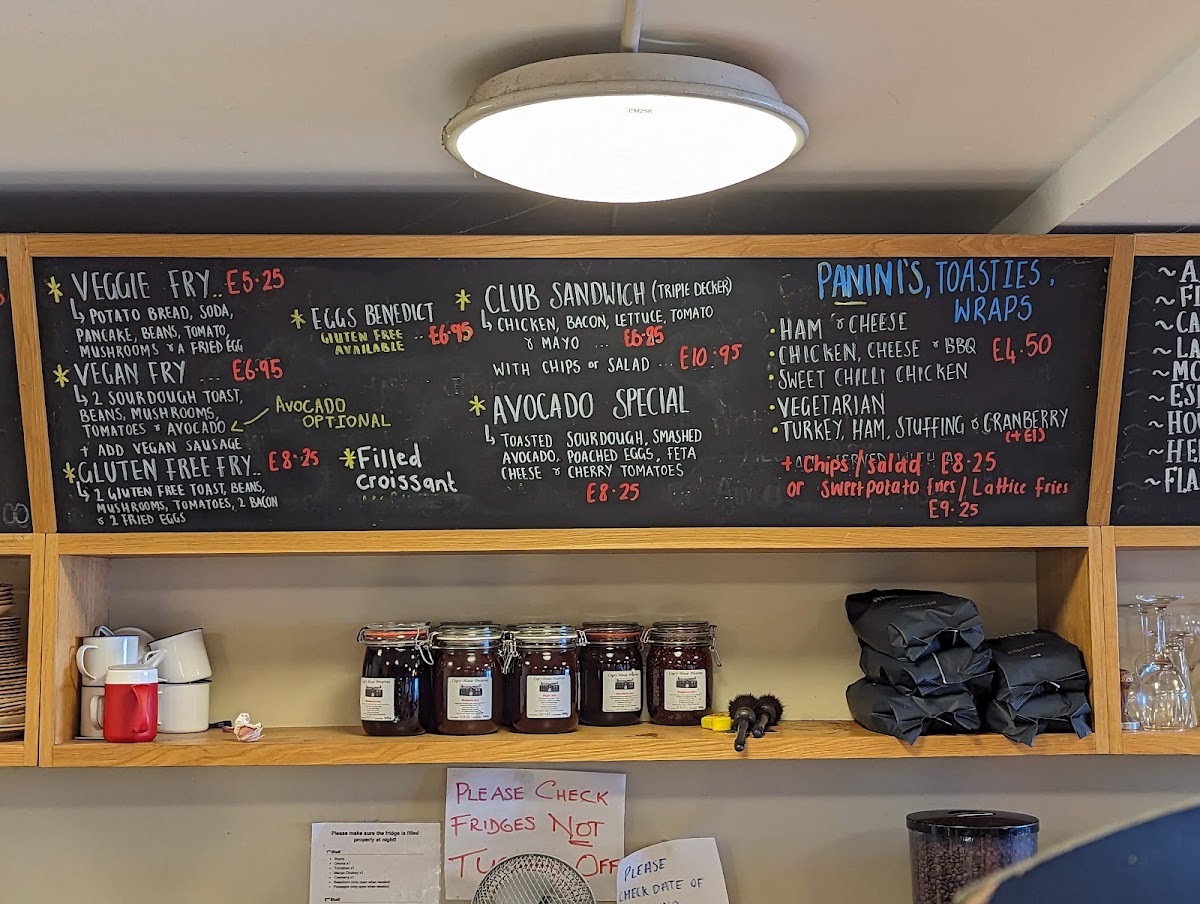 EM258
* VEGGIE FRY.. £5.25
POTATO BREAD, SODA,
PANCAKE, BEANS, TOMATO,
MUSHROOMS & A FRIED EGG
* VEGAN FRY ... £6.95
2 SOURDOUGH TOAST,
BEANS, MUSHROOMS,
TOMATOES & AVOCADO
+ ADD VEGAN SAUSAGE
AVOCADO
OPTIONAL
* GLUTEN FREE FRY.. £8.25
2 GLUTEN FREE TOAST, BEANS,
MUSHROOMS, TOMATOES, 2 BACON
& 2 FRIED EGGS
* EGGS BENEDICT
GLUTEN FREE
AVAILABLE .. £6.95
* Filled
croissant
* CLUB SANDWICH (TRIPLE DECKER)
CHICKEN, BACON, LETTUCE, TOMATO
& MAYO ... £6.85
WITH CHIPS or SALAD ... £10.95
* AVOCADO SPECIAL
TOASTED SOURDOUGH, SMASHED
AVOCADO, POACHED EGGS, FETA
CHEESE & CHERRY TOMATOES
£8.25
PANINI'S, TOASTIES,
WRAPS
• HAM & CHEESE
• CHICKEN, CHEESE & BBQ £4.50
• SWEET CHILLI CHICKEN
• VEGETARIAN
• TURKEY, HAM, STUFFING & CRANBERRY
(+£1)
+ Chips/salad £8.25
or sweetpotato fries/Lattice fries
£9.25
~ A
~ F
~ CA
~ LA
~ MO
~ ES
~ HO
~ HE
FLA
PLEASE CHECK
FRIDGES NOT
OFF
Please make sure the fridge is filled
properly at night!!
1st Shelf
PLEASE
CHECK DATE OF